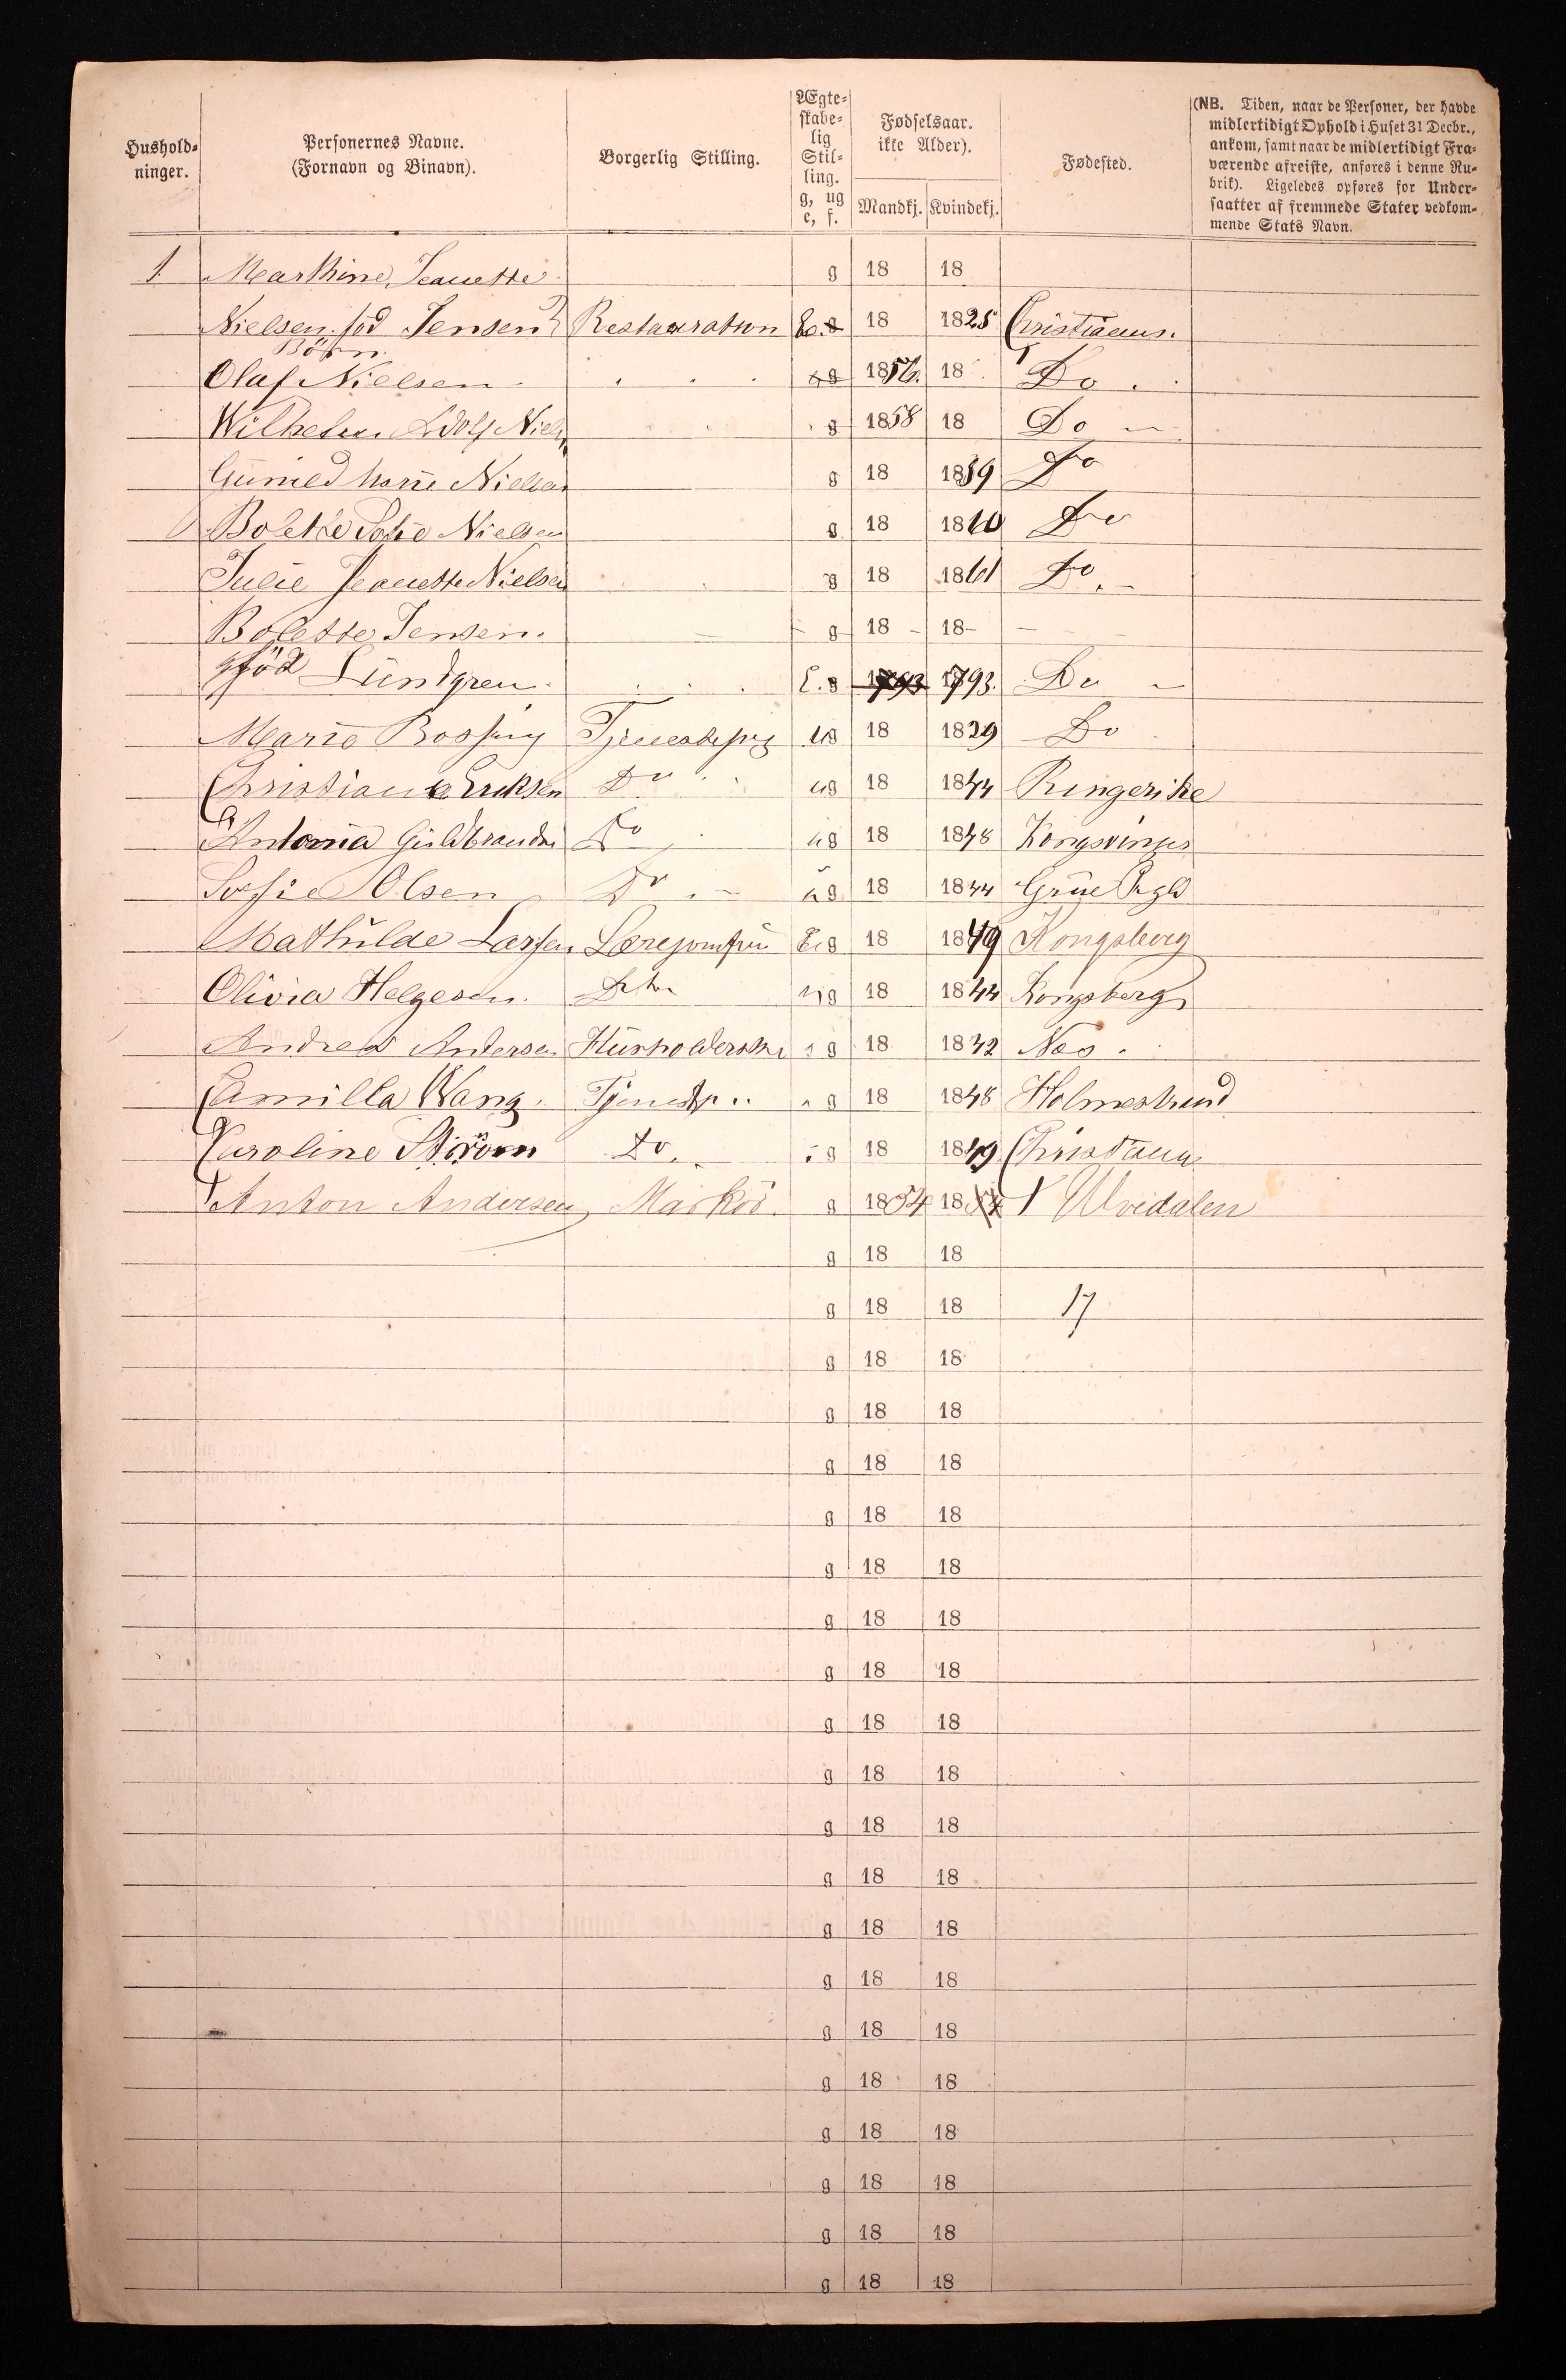 Hushold-
ninger.
Personernes Navne.
(Fornavn og Binavn).
Borgerlig Stilling.
Ægte-
skabe-
lig
Stil-
ling.
g, ug
e, f.
Fødselsaar.
ikke Alder).
Mandkj. Kvindekj.
Fødested.
(NB. Tiden, naar de Personer, der havde
midlertidigt Ophold i Huset 31 Decbr.,
ankom, samt naar de midlertidigt Fra-
værende afreiste, anføres i denne Ru-
brik). Ligeledes opføres for Under-
saatter af fremmede Stater vedkom-
mende Stats Navn.
1 Marthine Jeanette g 18 18
Nielsen. föd Jensen Restauration E. g 18 1825 Christiania.
Börn.
Olaf Nielsen g 1856. 18 Do.
Wilhelm Adolf Niels g 1858 18 Do
Marie Nielsen g 18 1859 Do
Bolette Sofie Nielsen g 18 1860 Do
Julie Jeanette Nielsen g 18 1861 Do.
Bolette Jensen. g 18 18
föd Lündgren E. g 1793. Do
Marie ug 18 1829 Do
Christiane Eriksen Do ug 18 1844 Ringerike
Antonia Do ug 18 1848 Kongsvinger
Sofie Olsen Do ug 18 1844 Grüe
Mathilde Larsen Lærejomfrü g 18 1849 Kongsberg
Olivia Helgesen. ug 18 1844 Kongsberg
Andrea Andersen g 18 1832 Næs.
Camilla Wang. g 18 1848 Holmestrand
Karoline Ström Do. g 18 1849 Christiania
Anton Andersen Markör. g 1854 18 Uvedalen
g 18 18
g 18 18 17
g 18 18
g 18 18
g 18 18
g 18 18
g 18 18
g 18 18
g 18 18
g 18 18
g 18 18
g 18 18
g 18 18
g 18 18
g 18 18
g 18 18
g 18 18
g 18 18
g 18 18
g 18 18
g 18 18